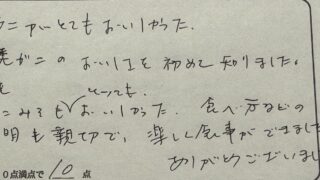 ニアがとてもおいしかった。
がこのおいしさを初めて知りました。
とっても
こみそもおいしかった。食べ方などの
明も親切で、楽しく食事ができました
ありがとうございまし
0点満点で 10 点